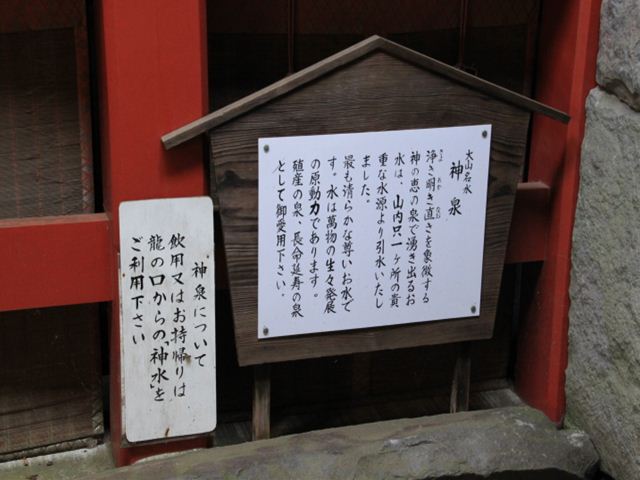 大山名水
神泉
浄き明き直さを象徴する
神の恵の泉で湧き出るお
水は、山内只一ヶ所の貴
重な水源より引水いたし
ました。
最も清らかな尊いお水で
す。水は萬物の生々発展
の原動力であります。
殖産の泉、長命延寿の泉
として御愛用下さい。
神泉について
飲用又はお持帰りは
龍の口からの「神水」を
ご利用下さい